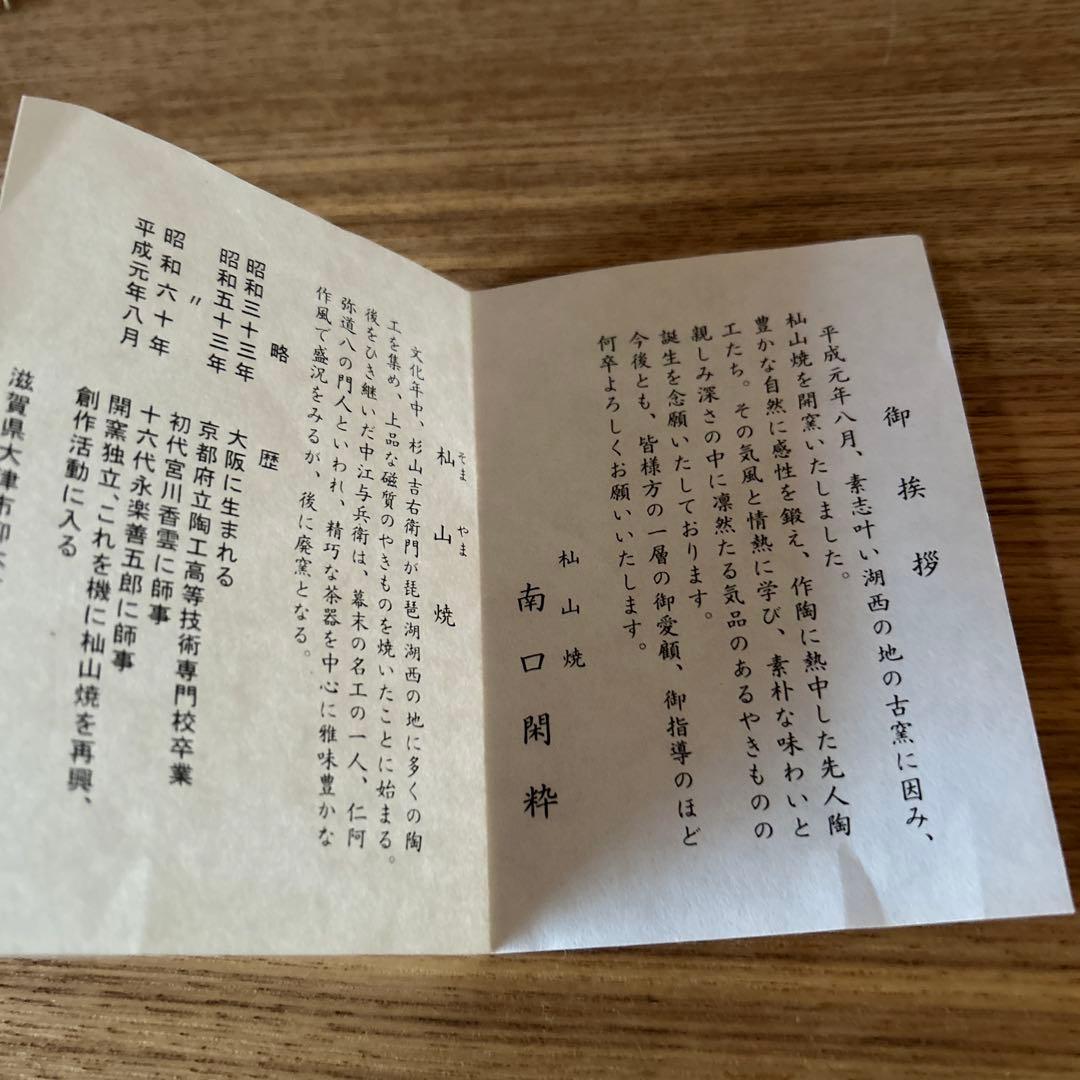 御挨拶
平成元年八月、素志叶い湖西の地の古窯に因み、
杣山焼を開窯いたしました。
豊かな自然に感性を鍛え、作陶に熱中した先人陶
工たち。その気風と情熱に学び、素朴な味わいと
親しみ深さの中に凛然たる気品のあるやきものの
誕生を念願いたしております。
今後とも、皆様方の一層の御愛顧、御指導のほど
何卒よろしくお願いいたします。
杣山焼
南口閑粋
そまやま
杣山焼
文化年中、杉山吉右衛門が琵琶湖湖西の地に多くの陶
工を集め、上品な磁質のやきものを焼いたことに始まる。
後をひき継いだ中江与兵衛は、幕末の名工の一人、仁阿
弥道八の門人といわれ、精巧な茶器を中心に雅味豊かな
作風で盛況をみるが、後に廃窯となる。
略歴
昭和三十三年 大阪に生まれる
昭和五十三年 京都府立陶工高等技術専門校卒業
〃 初代宮川香雲に師事
昭和六十年 十六代永楽善五郎に師事
平成元年八月 開窯独立、これを機に杣山焼を再興、
創作活動に入る
滋賀県大津市